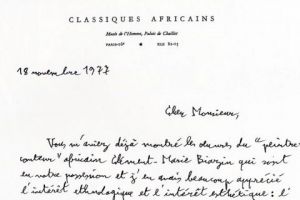 CLASSIQUES AFRICAINS
Musée de l'Homme, Palais de Chaillot
PARIS-16e * KLE 82-03
18 novembre 1977
Cher Monsieur,
Vous m'aviez déjà montré les œuvres du "peintre-
conteur" africain Clément-Marie Biazin qui sont
en votre possession et j'en avais beaucoup apprécié
l'intérêt ethnologique et l'intérêt esthétique : l'